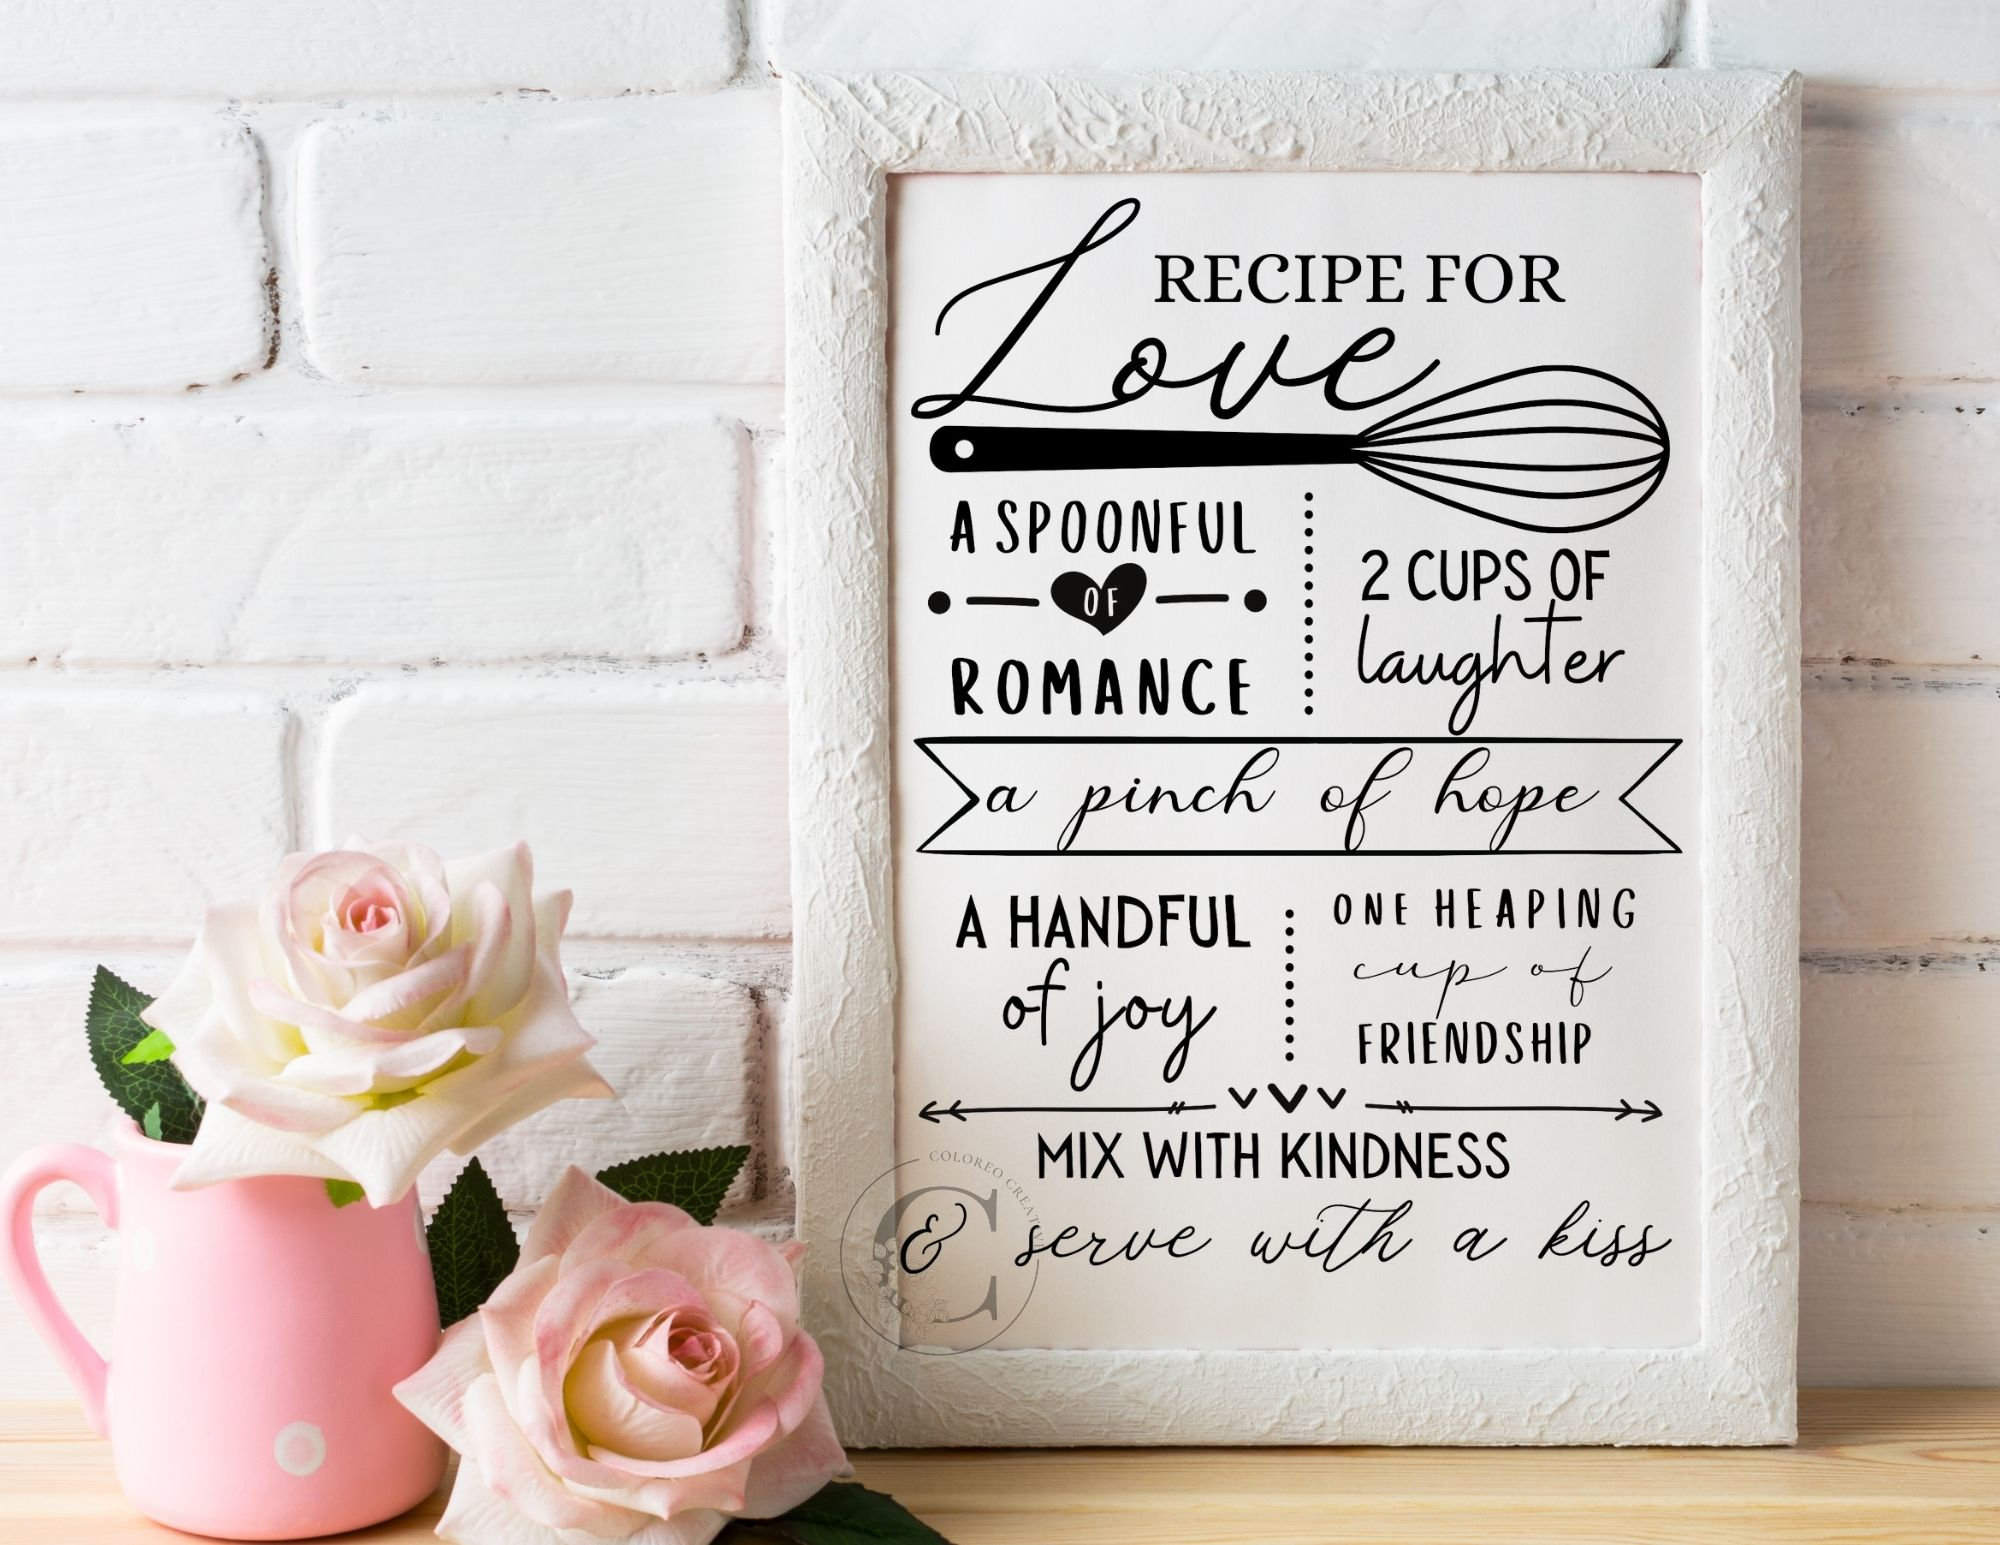 RECIPE FOR
Love
A SPOONFUL
OF
ROMANCE
2 CUPS OF
laughter
a pinch of hope
A HANDFUL
of joy
ONE HEAPING
cup of
FRIENDSHIP
MIX WITH KINDNESS
& serve with a kiss
C